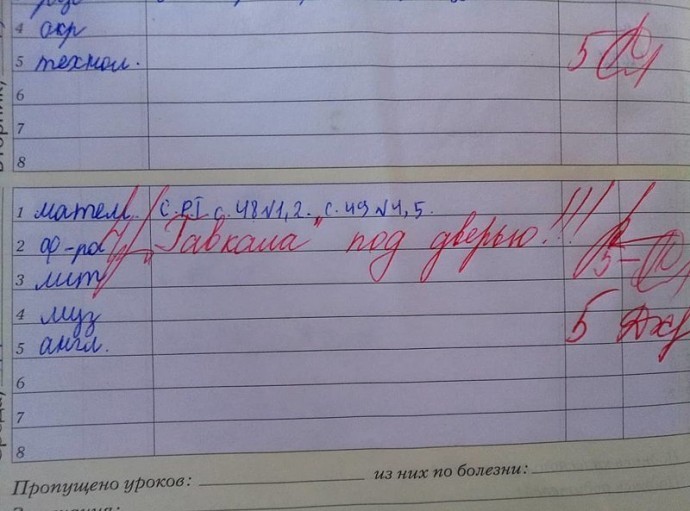 4 окр
5 технол. 5
6
7
8
1 матем. с. РТ с. 48 №1,2. с. 49 №4,5.
2 ф-ра "Гавкала" под дверью!!! 5-
3 лит
4 муз
5 англ. 5
6
7
8
Пропущено уроков: из них по болезни: